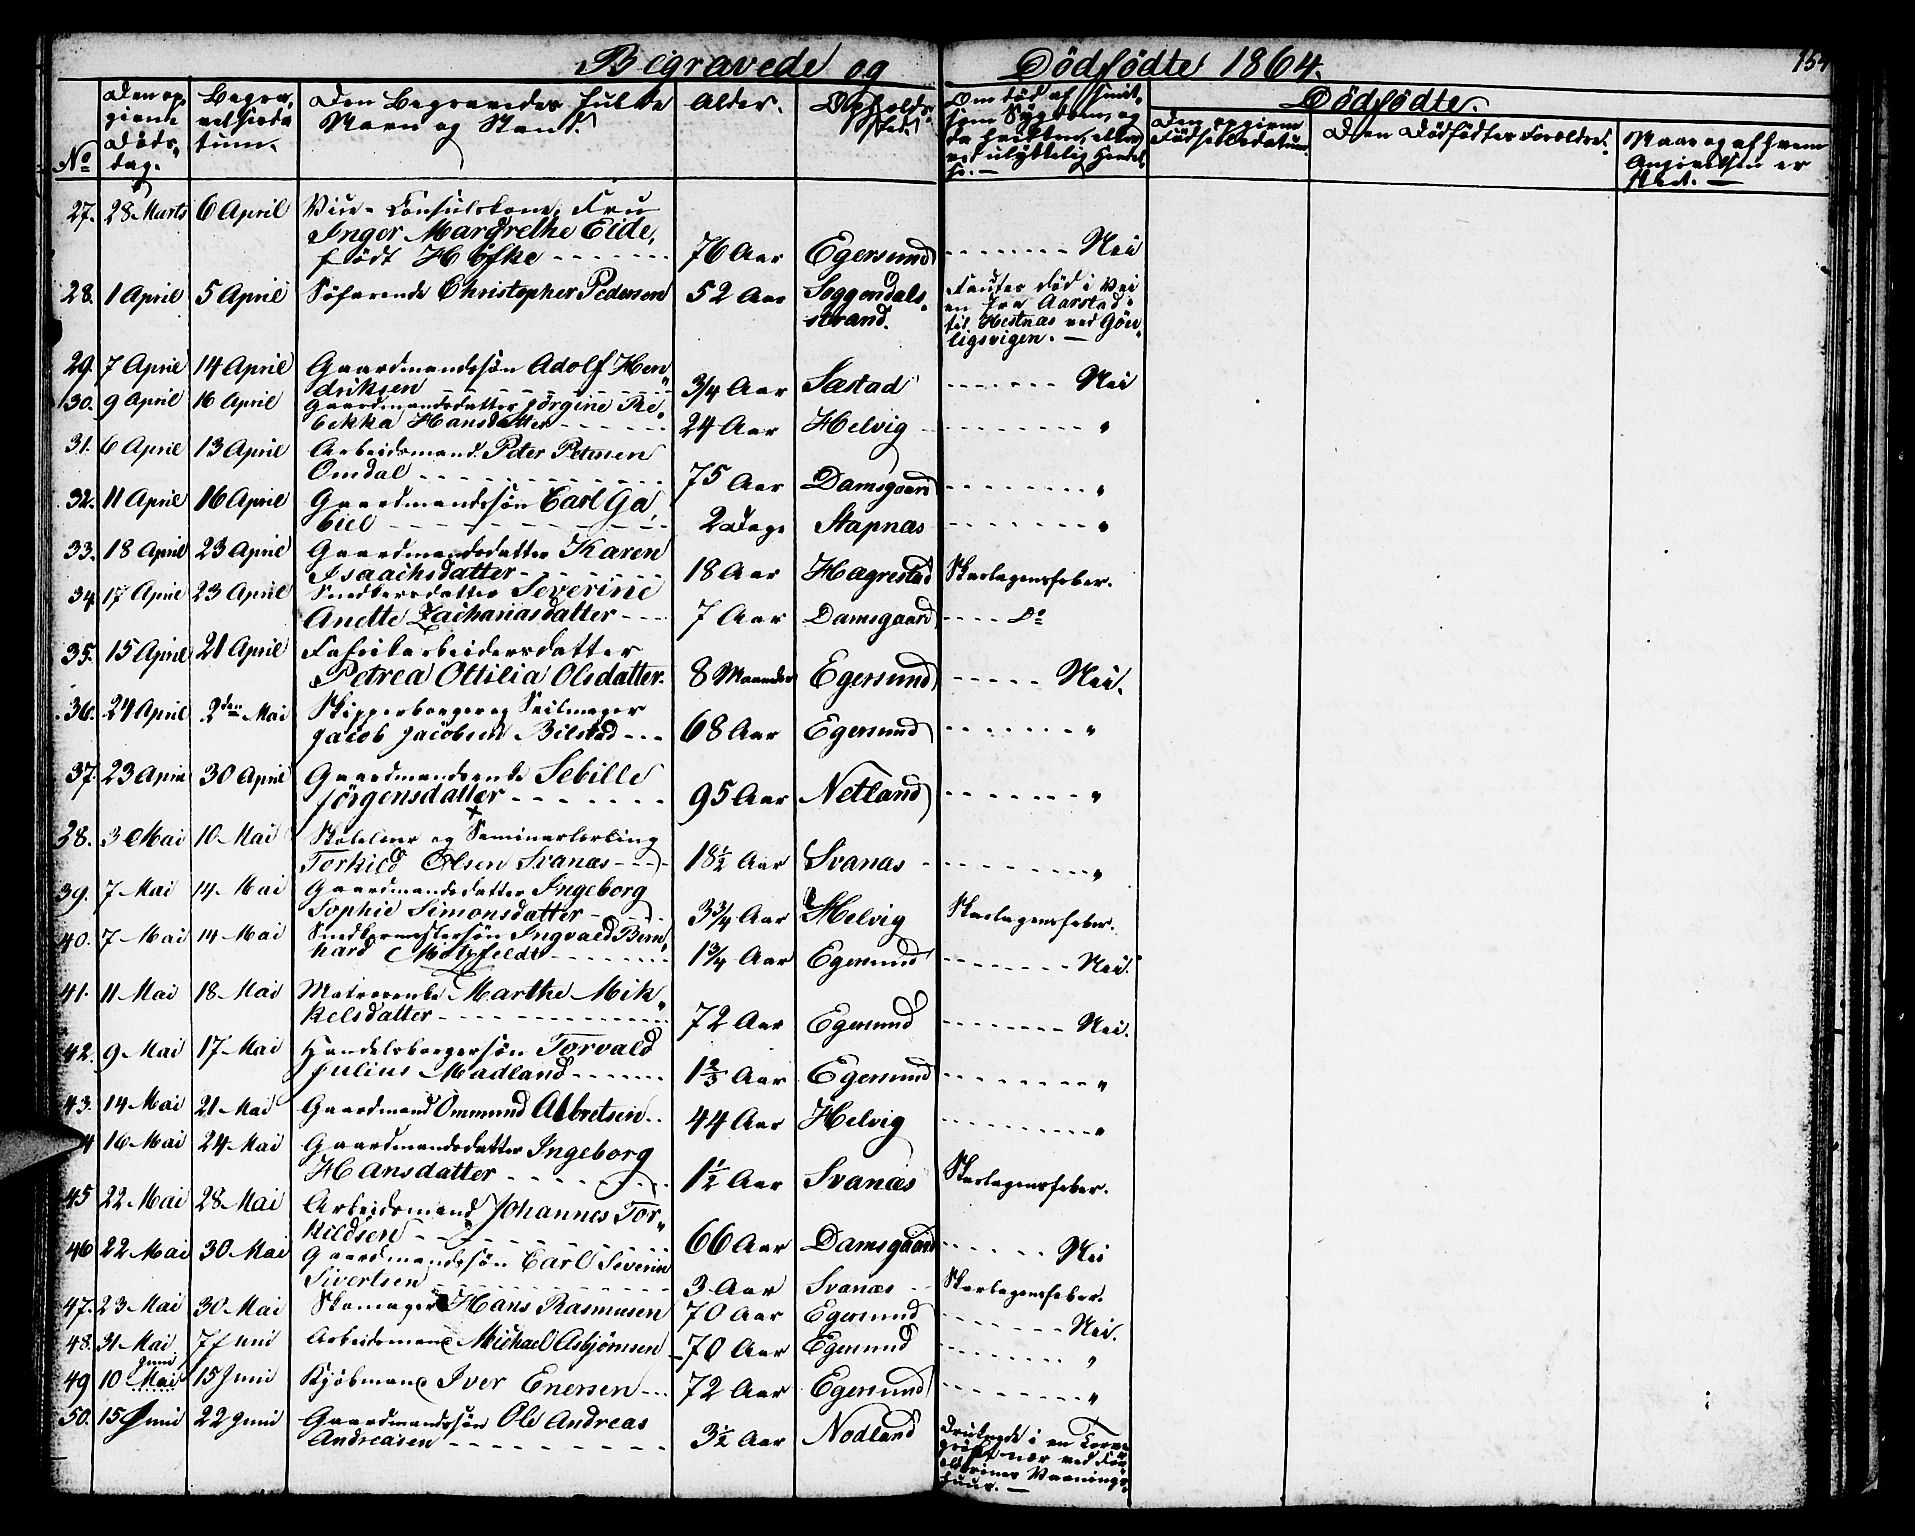 Begravede og Dödfödte 1864.
154
No
Den op-
givne
Döds-
dag.
Begra-
velsesda
tum.
Den Begravedes fulde
Navn og Stand.
Alder.
Opholds-
sted.
Om död af smit-
som Sygdom, og
ved ulykkelig Hendel-
se. —
Dödfödte.
Den opgivne
Födselsdatum.
Den Dödfödtes Foreldre.
Naar og af hvem
Angivelsen er
skeet. —
27. 28 Marts 6 April Vice-Consulskone, Fru
Inger Margrethe Eide,
födt Höfke 76 Aar Egersund Nei
28. 1 April 5 April Söfarende Christopher Pedersen 52 Aar Soggendals-
strand.
Fandtes död i Vei
en fra Aarstad
til Hestnæs ved
ligsvigen. —
29. 7 April 14 April Gaardmandssön Adolf Hen
driksen 3/4 Aar Sæstad Nei
30. 9 April 16 April Gaardmandsdatter Jörgine Re-
bekka Hansdatter 24 Aar Helvig "
31. 6 April 13 April Arbeidsmand Peter Petersen
Omdal 75 Aar Damsgaard "
32. 11 April 16 April Gaardmandssön Carl Ga-
biel 2 Dage Stapnæs "
33. 18 April 23 April Gaardmandsdatter Karen
Isaachsdatter 18 Aar Hægrestad Skarlagensfeber.
34. 17 April 23 April Snedkersdatter Severine
Anette Zachariasdatter 7 Aar Damsgaard Do
35. 15 April 21 April Fabrikarbeidersdatter
Petrea Ottilia Olsdatter. 8 Maaneder Egersund Nei.
36. 24 April 2den Mai Skipperborger og Seilmager
Jacob Jacobsen Bilstad 68 Aar Egersund "
37. 23 April 30 April Gaardmandsenke Sebille
Jörgensdatter 95 Aar Netland "
38. 3 Mai 10 Mai Skolelærer og Seminarlærling
Torkild Olsen Svanæs 18 1/2 Aar Svanæs "
39. 7 Mai 14 Mai Gaardmandsdatter Ingeborg
Sophie Simonsdatter 3 3/4 Aar Helvig Skarlagensfeber.
40. 7 Mai 14 Mai Snedkermestersön Ingvald Bern-
hard Motzfeldt 1 3/4 Aar Egersund Nei.
41. 11 Mai 18 Mai Matrosenke Marthe Mik-
kelsdatter 72 Aar Egersund Nei.
42. 9 Mai 17 Mai Handelsborgersön Torvald
Julius Madland 1 2/3 Aar Egersund "
43. 14 Mai 21 Mai Gaardmand Ommund Albretsen 44 Aar Helvig "
4 16 Mai 24 Mai Gaardmandsdatter Ingeborg
Hansdatter 1 1/2 Aar Svanæs Skarlagensfeber.
45 22 Mai 28 Mai Arbeidsmand Johannes Tor-
kildsen 66 Aar Damsgaard Nei
46 22 Mai 30 Mai Gaardmandssön Carl Severin
Sivertsen 3 Aar Svanæs Skarlagensfeber.
47. 23 Mai 30 Mai Skomager Hans Rasmusen 70 Aar Egersund Nei.
48. 31 Mai 7 Juni Arbeidsmand Michael Asbjörnsen 70 Aar Egersund "
Juni
49 10 Mai 15 Juni Kjöbmand Iver Enersen 72 Aar Egersund "
50. 15 Juni 22 Juni Gaardmandssön Ole Andreas
Andreasen 3 1/2 Aar Nodland Druknede i en Torv-
gröft nær ved For
ældrenes Vaanings-
huus. —